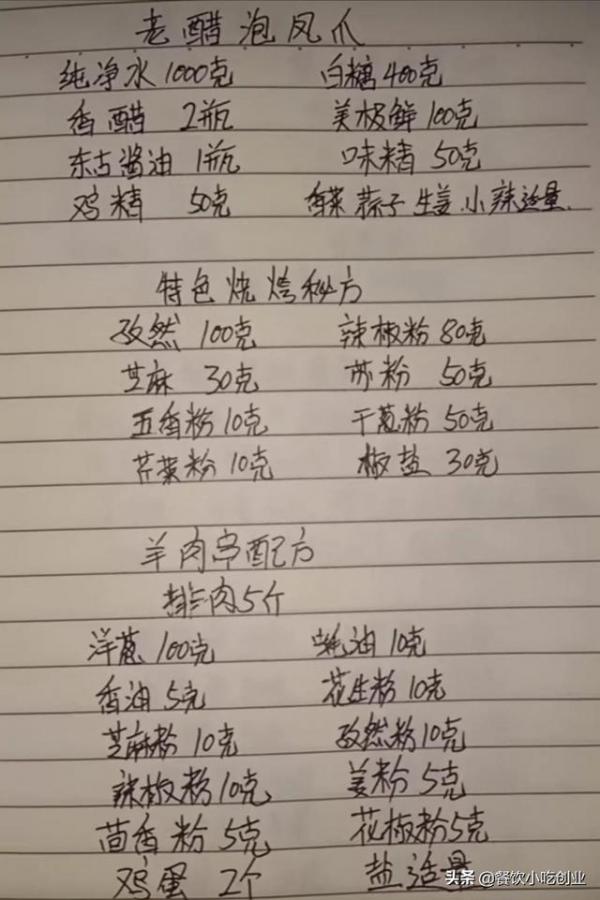 老醋泡凤爪
纯净水 1000克 白糖 400克
香醋 2瓶 美极鲜 100克
东古酱油 1瓶 味精 50克
鸡精 50克 香菜 蒜子 生姜.小辣适量.
特色烧烤秘方
孜然 100克 辣椒粉 80克
芝麻 30克 苏粉 50克
五香粉 10克 干葱粉 50克
芹菜粉 10克 椒盐 30克
羊肉串配方
排肉5斤
洋葱 100克 蚝油 10克
香油 5克 花生粉 10克
芝麻粉 10克 孜然粉 10克
辣椒粉 10克 姜粉 5克
茴香粉 5克 花椒粉 5克
鸡蛋 2个 盐适量
头条 @餐饮小吃创业